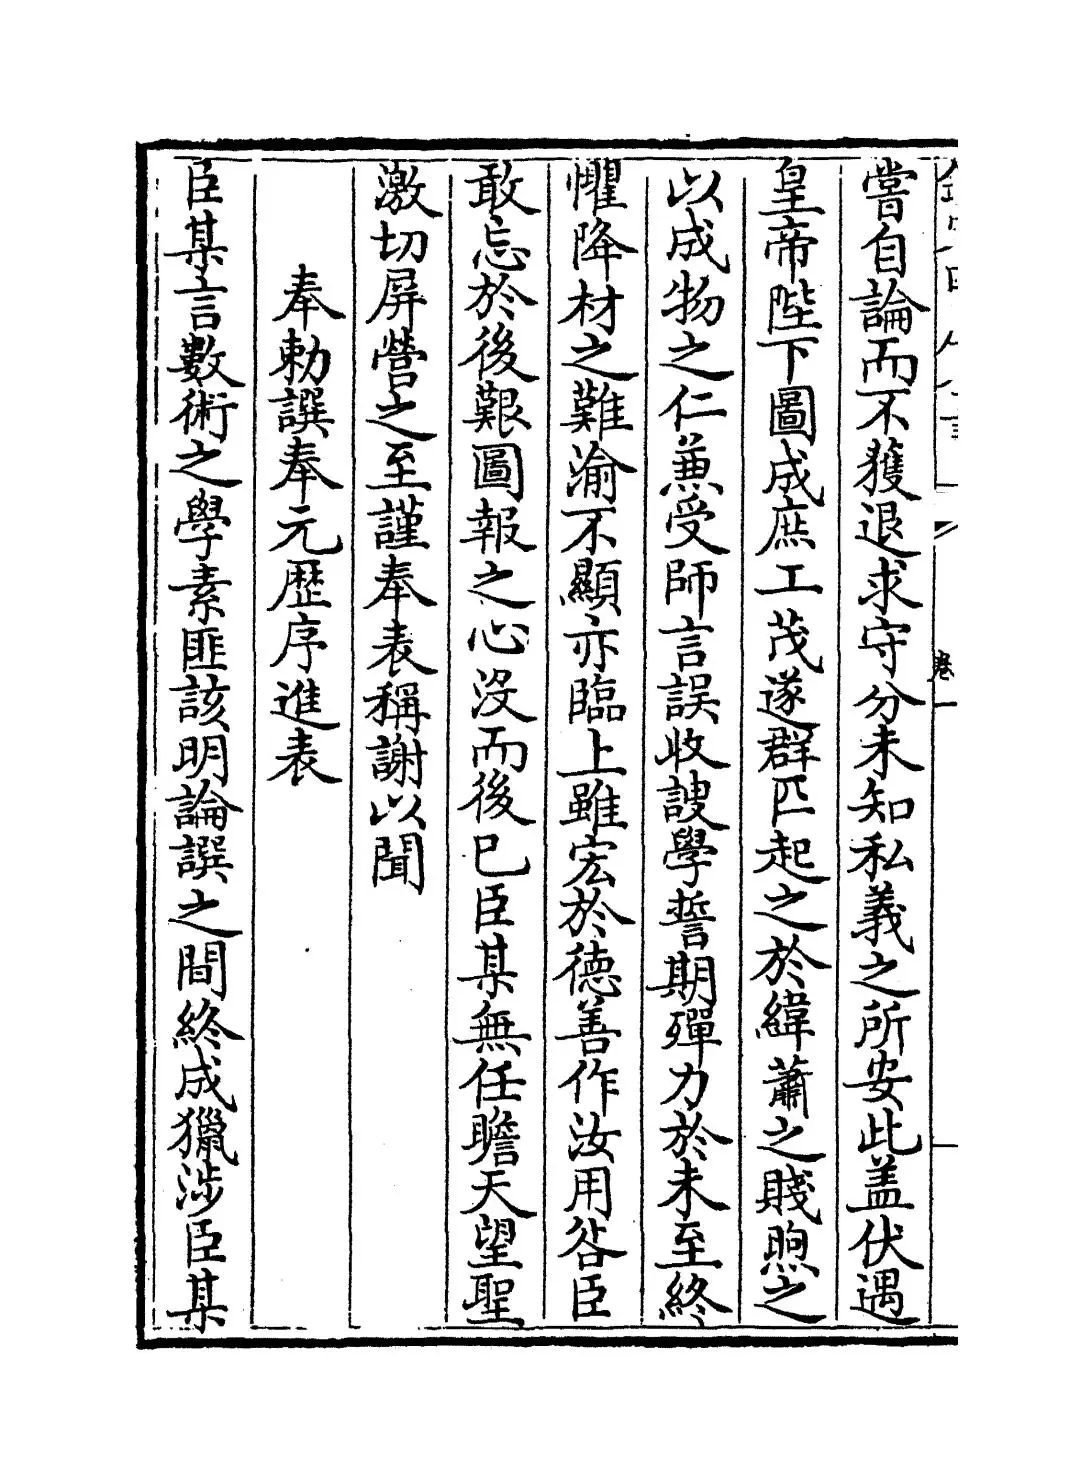 卷一
嘗自論而不獲退求守分未知私義之所安此盖伏遇
皇帝陛下圖成庶工茂遂群匹起之於緯蕭之賤煦之
以成物之仁兼受師言誤收謏學誓期殫力於未至終
懼降材之難渝不顯亦臨上雖宏於德善作汝用咎臣
敢忘於後艱圖報之心沒而後已臣某無任瞻天望聖
激切屏營之至謹奉表稱謝以聞
奉勅譔奉元歴序進表
臣某言數術之學素匪該明論譔之間終成獵涉臣某